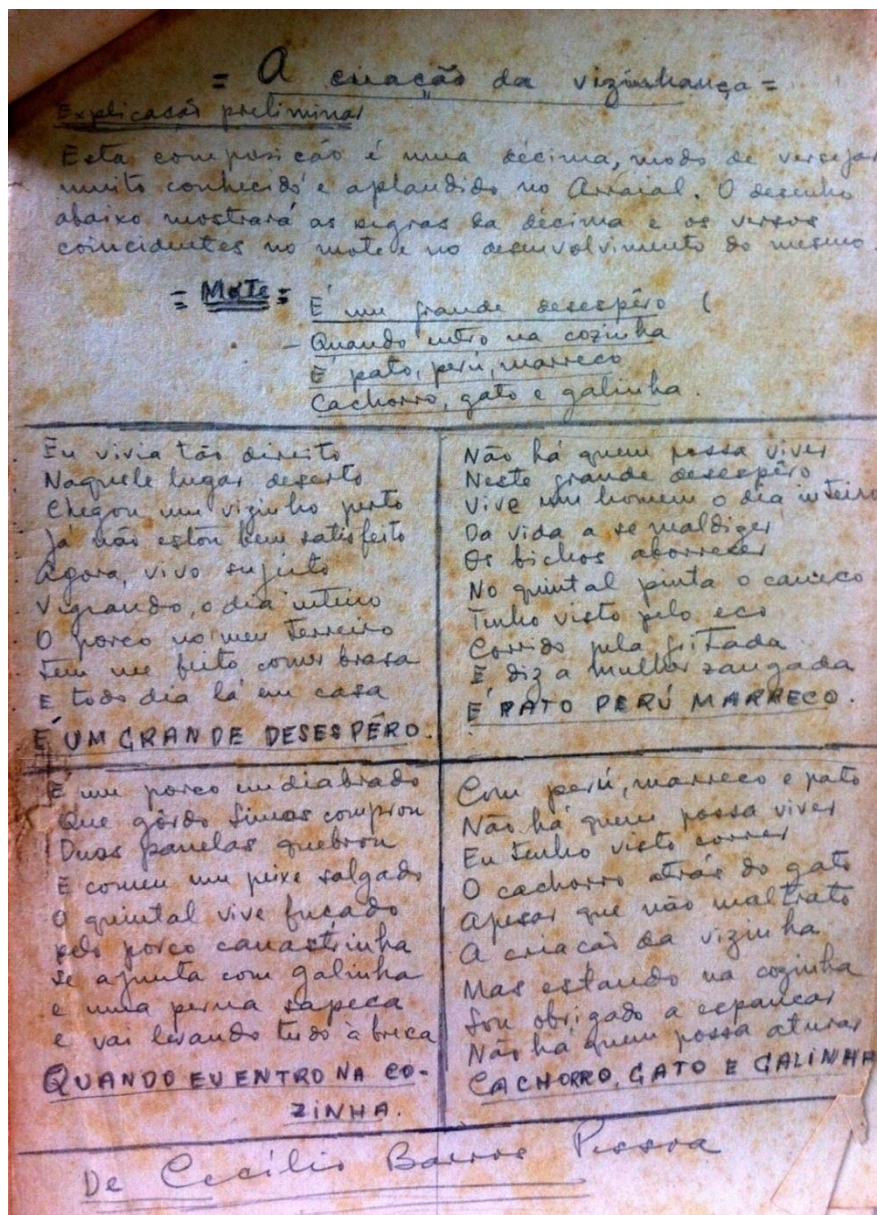 = A criação da vizinhança =
Explicação preliminar
Esta composição é uma décima, modo de versejar
muito conhecido e aplaudido no Arraial. O desenho
abaixo mostrará as regras da décima e os versos
coincidentes no mote e no desenvolvimento do mesmo.
= MOTE =
É um grande desespêro (
- Quando entro na cozinha
É pato, perú, marreco
Cachorro, gato e galinha.
Eu vivia tão direito
Naquele lugar deserto
Chegou um vizinho perto
Já não estou bem satisfeito
Agora, vivo sujeito
Vigiando, o dia inteiro
O porco no meu terreiro
Tem me feito comer brasa
E todo dia lá em casa
É UM GRANDE DESESPÊRO.
Não há quem possa viver
Neste grande desespêro
Vive um homem o dia inteiro
Da vida a se maldizer
Os bichos aborrecer
No quintal pinta o caneco
Tenho visto pelo eco
Corrido pela gritada
E diz a mulher zangada
É PATO PERÚ MARRECO.
É um porco endiabrado
Que gôrdo Simas comprou
Duas panelas quebrou
E comeu um peixe salgado
O quintal vive fuçado
pelo porco canastrinha
se ajunta com galinha
e uma perna sapeca
e vai levando tudo à breca
QUANDO EU ENTRO NA CO-
ZINHA.
Com perú, marreco e pato
Não há quem possa viver
Eu tenho visto correr
O cachorro atrás do gato
Apesar que não maltrato
A criação da vizinha
Mas estando na cozinha
Sou obrigado a espancar
Não há quem possa aturar
CACHORRO, GATO E GALINHA
De Cecílio Barros Pessoa